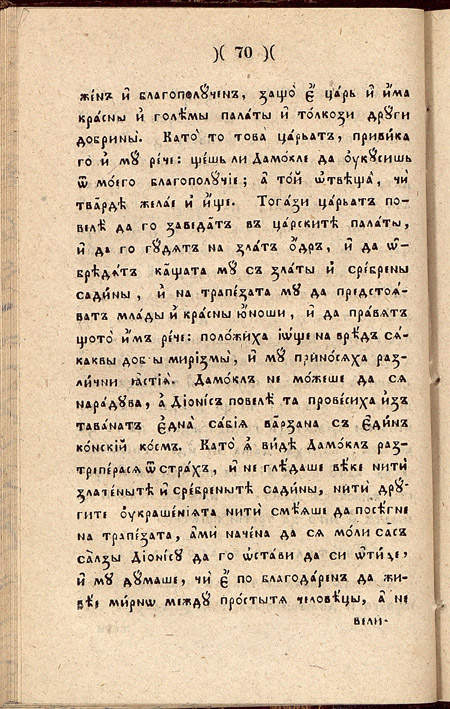 )( 70 )(
же́нъ и҆ благополꙋ́ченъ, защо̀ є҆̀ ца́рь и҆ и҆́ма
кра́сны и҆ голѣ́мы пала́ты и҆ то́лкози дрꙋги
добрины̀. Като̀ то това̀ ца́рьатъ, приви́ка
го и҆ мꙋ̀ ре́че: ще́шь ли Дамо́кле да ѹ҆кꙋ́сишь
ѿ мо́его благополꙋ́чїе; а҆ то́й ѿвѣща̀, чѝ
тва̂рдѣ жела́е и҆ и҆́ще. Тога́зи ца́рьатъ по-
велѣ̀ да го заведа̂тъ въ ца́рскитѣ пала́ты,
и҆ да го гꙋ́дѧтъ на зла́тъ ѻ҆́дръ, и҆ да ѡ҆-
брѣ́дѧтъ ка̂щата мꙋ̀ съ зла́ты и҆ сре́брены
сади́ны, и҆ на трапе́зата мꙋ̀ да предстоѧ́-
ватъ мла́ды и҆ кра́сны ю҆́ноши, и҆ да пра́вѧтъ
щото̀ и҆̀мъ ре́че: поло́жиха і҆ѡ́ще на врѣ́дъ сѧ́-
каквы добꙋы мирі́змы, и҆ мꙋ̀ прино́сѧха раз-
ли́чни ꙗ҆́стїѧ. Дамо́клъ не мо́жеше да сѧ
нара́дꙋва, а҆ Дїонѵ́съ повелѣ̀ та прове́сиха и҆зъ
тава́натъ є҆дна̀ са́бїѧ ва̂рзана съ є҆ди́нъ
ко́нскїй ко́смъ. Като̀ ѧ҆̀ ви́дѣ Дамо́клъ раз-
трепе́расѧ ѿ стра́хъ, и҆ не глѣ́даше ве́ке нитѝ
злате́нытѣ и҆ сре́бренытѣ сади́ны, нитѝ дрꙋ́-
гите ѹ҆краше́нїѧта нитѝ смѣ́ѧше да посе́гне
на трапе́зата, а҆мѝ наче́на да сѧ мо́ли са̂съ
са̂лзы Дїонѵ́сꙋ да го ѡ҆ста́ви да си ѿи́де,
и҆ мꙋ̀ дꙋ́маше, чѝ є҆̀ по благода́ренъ да жи-
ве́е ми́рнѡ междꙋ̀ про́стытѧ человѣ́цы, а҆ не
вели-